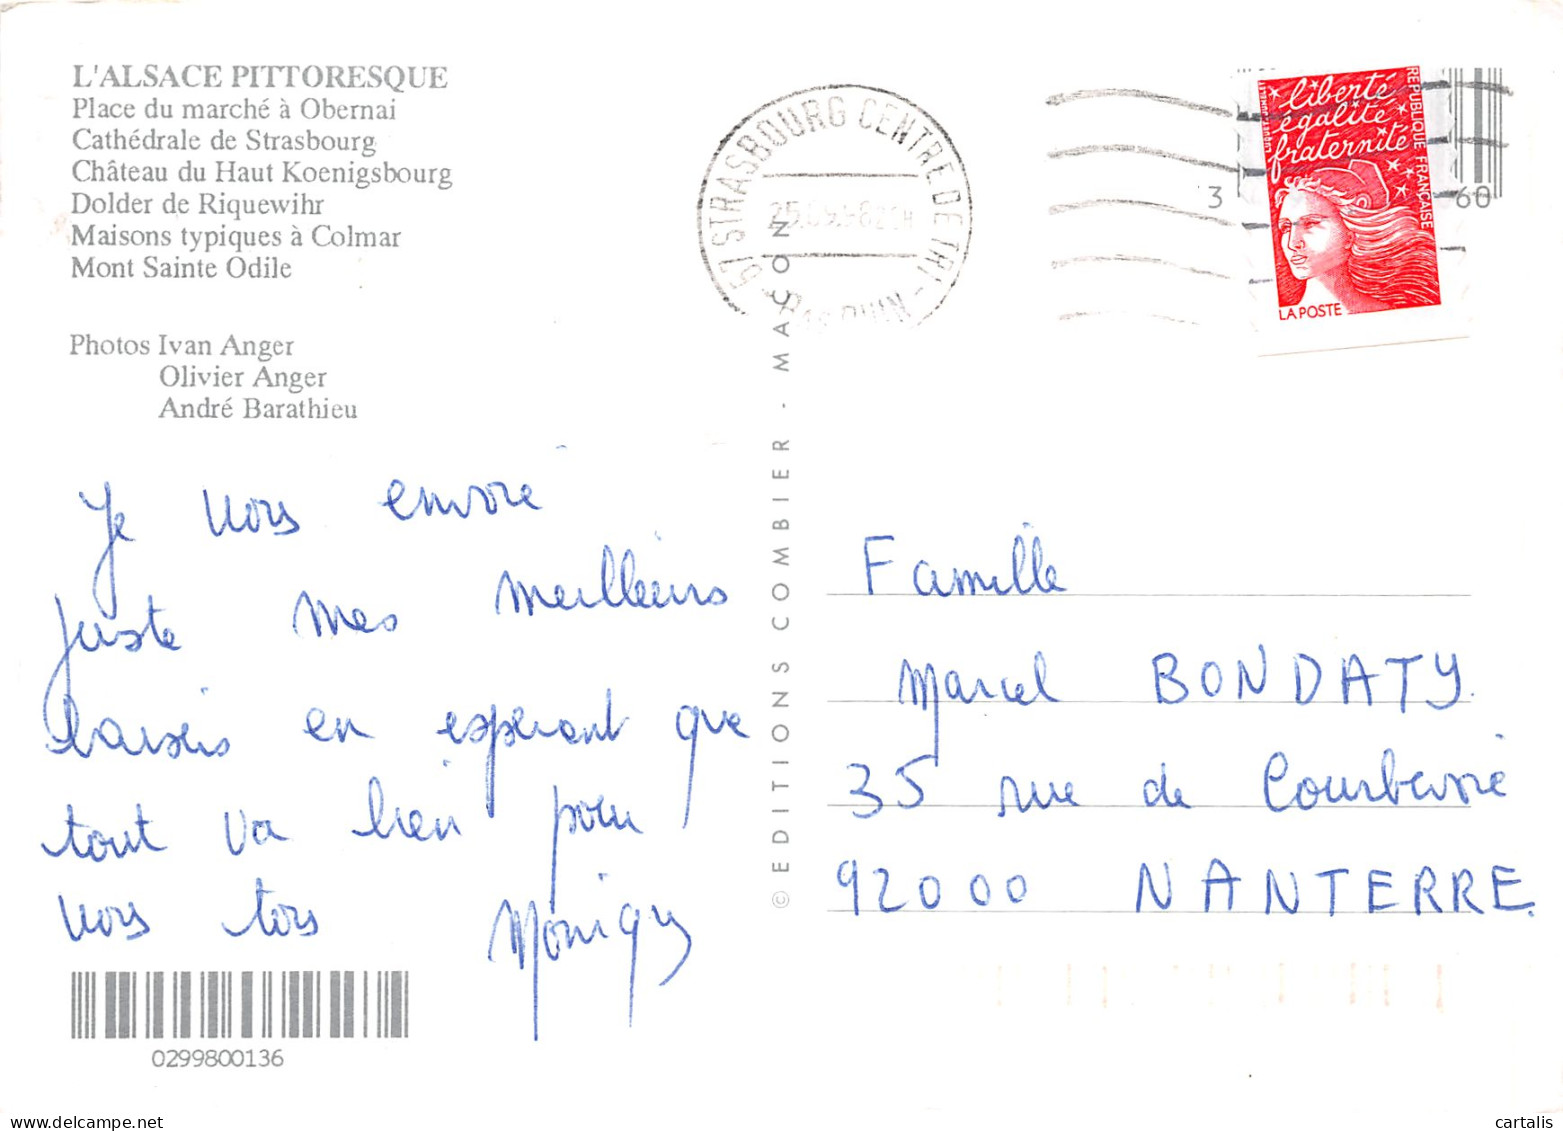 L'ALSACE PITTORESQUE
Place du marché à Obernai
Cathédrale de Strasbourg
Château du Haut Koenigsbourg
Dolder de Riquewihr
Maisons typiques à Colmar
Mont Sainte Odile
Photos Ivan Anger
Olivier Anger
André Barathieu
Je vous envoie
juste mes meilleurs
baisers en espérant que
tout va bien pour
vous tous
0299800136
© EDITIONS COMBIER - MACON
67 STRASBOURG CENTRE DE TRI -
3
60
liberté
égalité
fraternité
REPUBLIQUE FRANÇAISE
LA POSTE
Famille
Marcel BONDATY.
35 rue de Courbevoie
92000 NANTERRE.
delcampe.net
cartalis